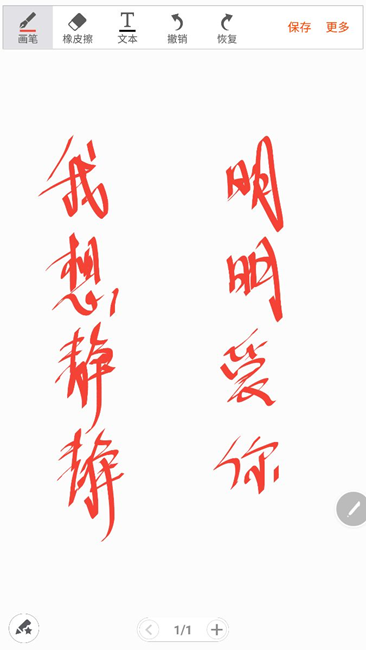 画笔 橡皮擦 文本 撤销 恢复 保存 更多
我想静静
明明爱你
1/1